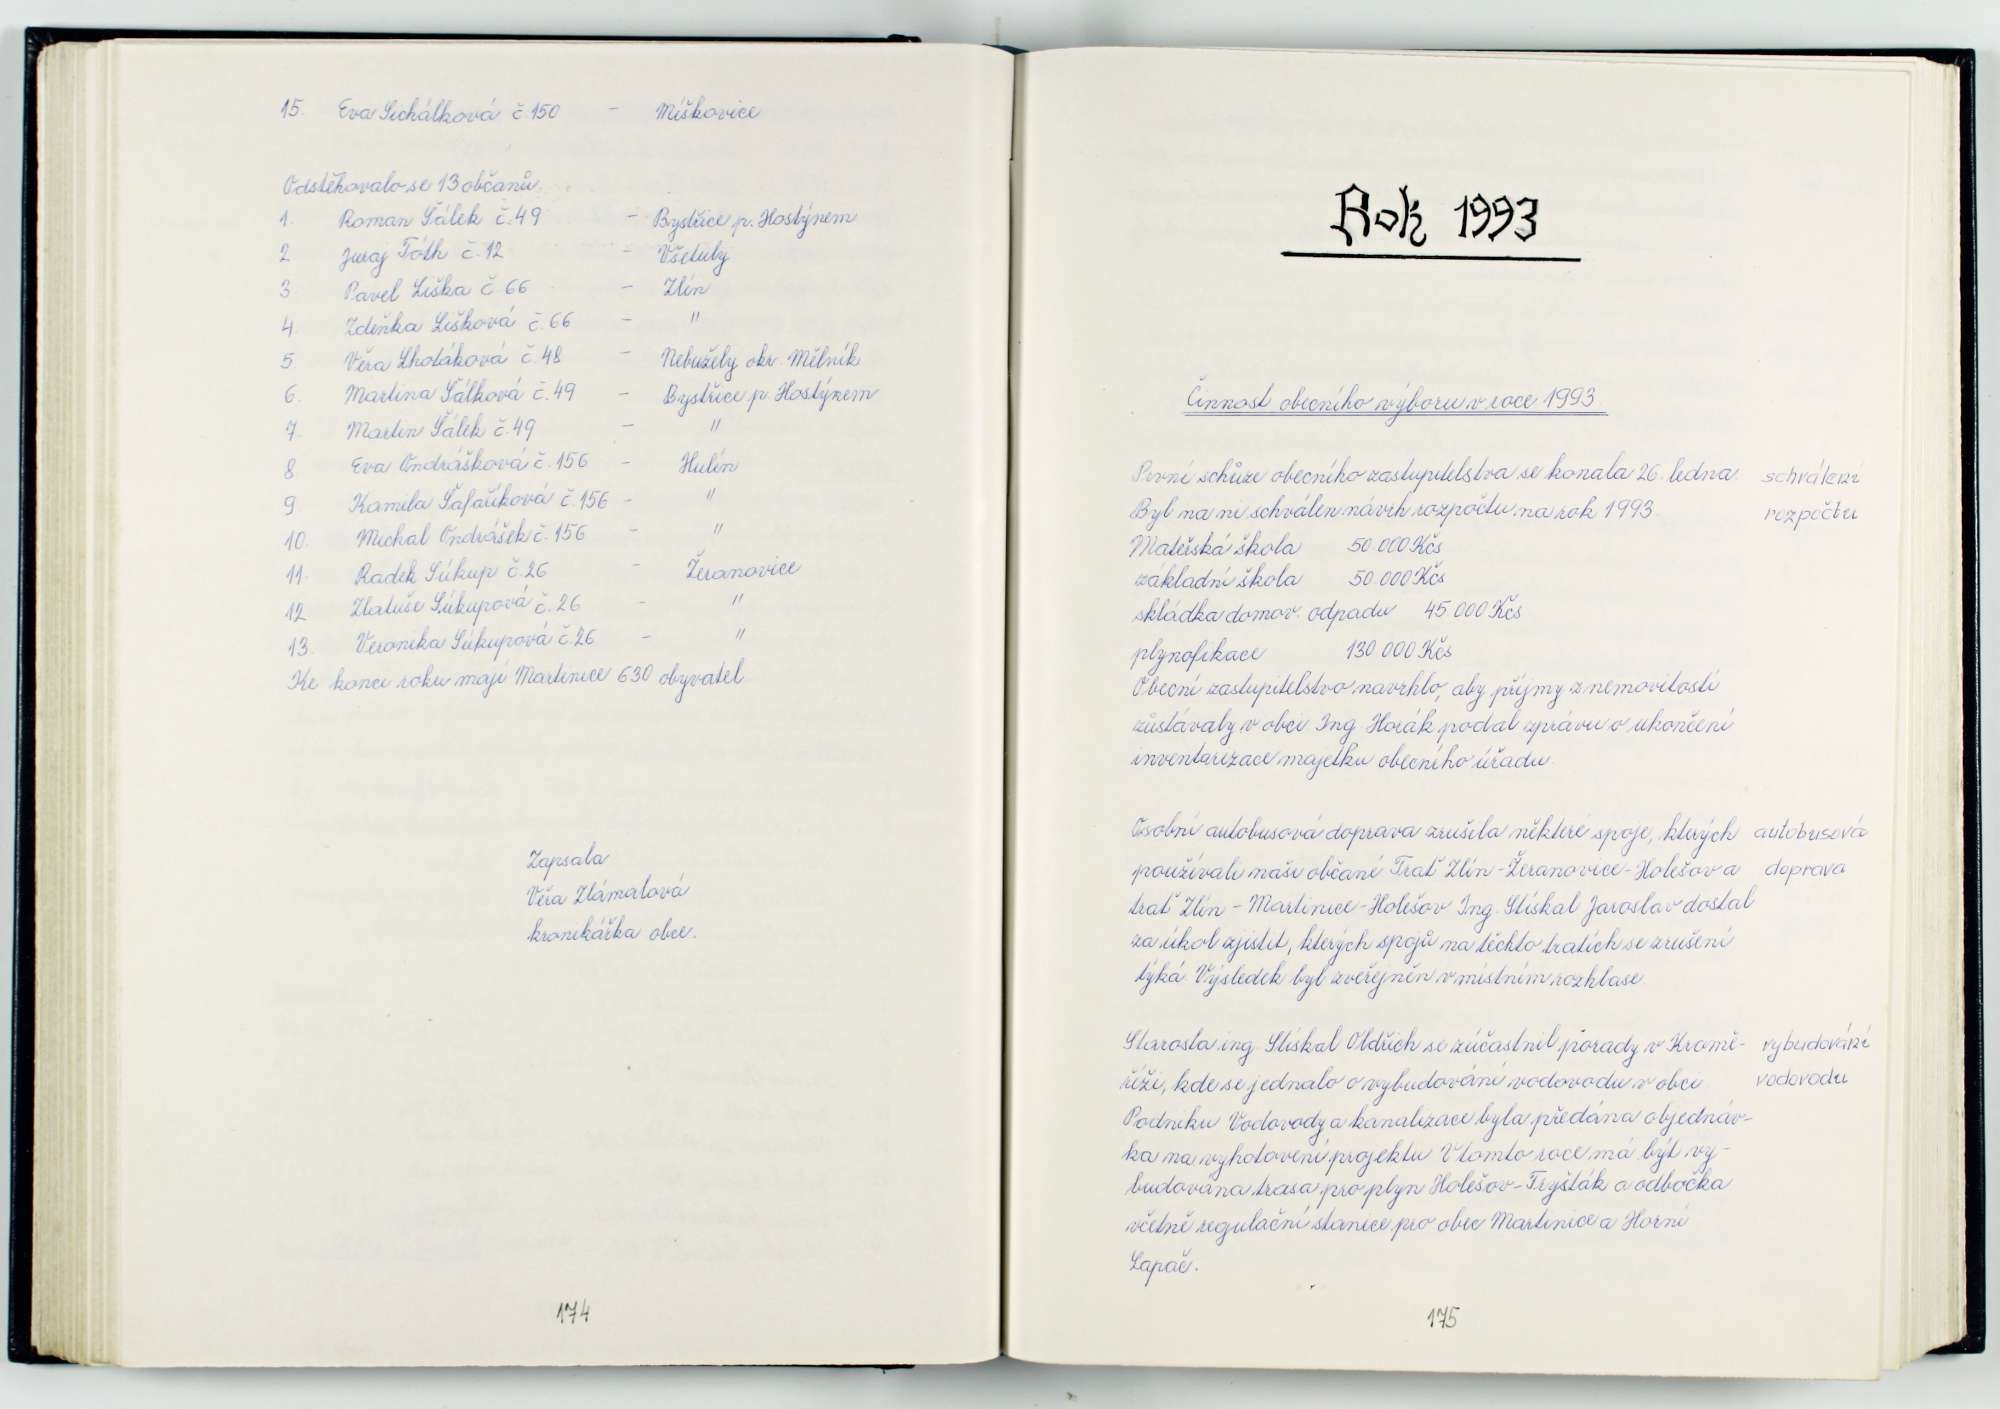 15. Eva Sichálková č.150 - Míškovice
Odstěhovalo se 13 občanů.
1. Roman Šálek č.49 - Bystřice p. Hostýnem
2 Juraj Tóth č.12 - Všetuly
3 Pavel Liška č 66 - Zlín
4. Zdeňka Lišková č.66 - "
5. Věra Lhotáková č.48 - Nebužely okr. Mělník
6. Martina Šálková č.49 - Bystřice p. Hostýnem
7. Martin Šálek č.49 - "
8 Eva Ondrášková č.156 - Hulín
9 Kamila Šafaříková č.156 - "
10. Michal Ondrášek č.156 - "
11. Radek Súkup č.26 - Žeranovice
12 Zlatuše Súkupová č.26 - "
13. Veronika Súkupová č.26 - "
Ke konci roku mají Martinice 630 obyvatel
Zapsala
Věra Zlámalová
kronikářka obce.
174
Rok 1993
Činnost obecního výboru v roce 1993.
První schůze obecního zastupitelstva se konala 26. ledna. schválení
Byl na ní schválen návrh rozpočtu na rok 1993. rozpočtu
Mateřská škola 50.000 Kčs
základní škola 50.000 Kčs
skládka domov. odpadu 45 000 Kčs
plynofikace 130.000 Kčs
Obecní zastupitelstvo navrhlo, aby příjmy z nemovitostí
zůstávaly v obci. Ing. Horák podal zprávu o ukončení
inventarizace majetku obecního úřadu.
Osobní autobusová doprava zrušila některé spoje, kterých autobusová
používali naši občané. Trať Zlín - Žeranovice - Holešov a doprava
trať Zlín - Martinice - Holešov. Ing. Stískal Jaroslav dostal
za úkol zjistit, kterých spojů na těchto tratích se zrušení
týká. Výsledek byl zveřejněn v místním rozhlase.
Starosta ing. Stískal Oldřich se zúčastnil porady v Kromě- vybudování
říži, kde se jednalo o vybudování vodovodu v obci. vodovodu
Podniku Vodovody a kanalizace byla předána objednáv-
ka na vyhotovení projektu. V tomto roce má být vy-
budována trasa pro plyn Holešov - Fryšták a odbočka
včetně regulační stanice pro obec Martinice a Horní
Lapač.
175